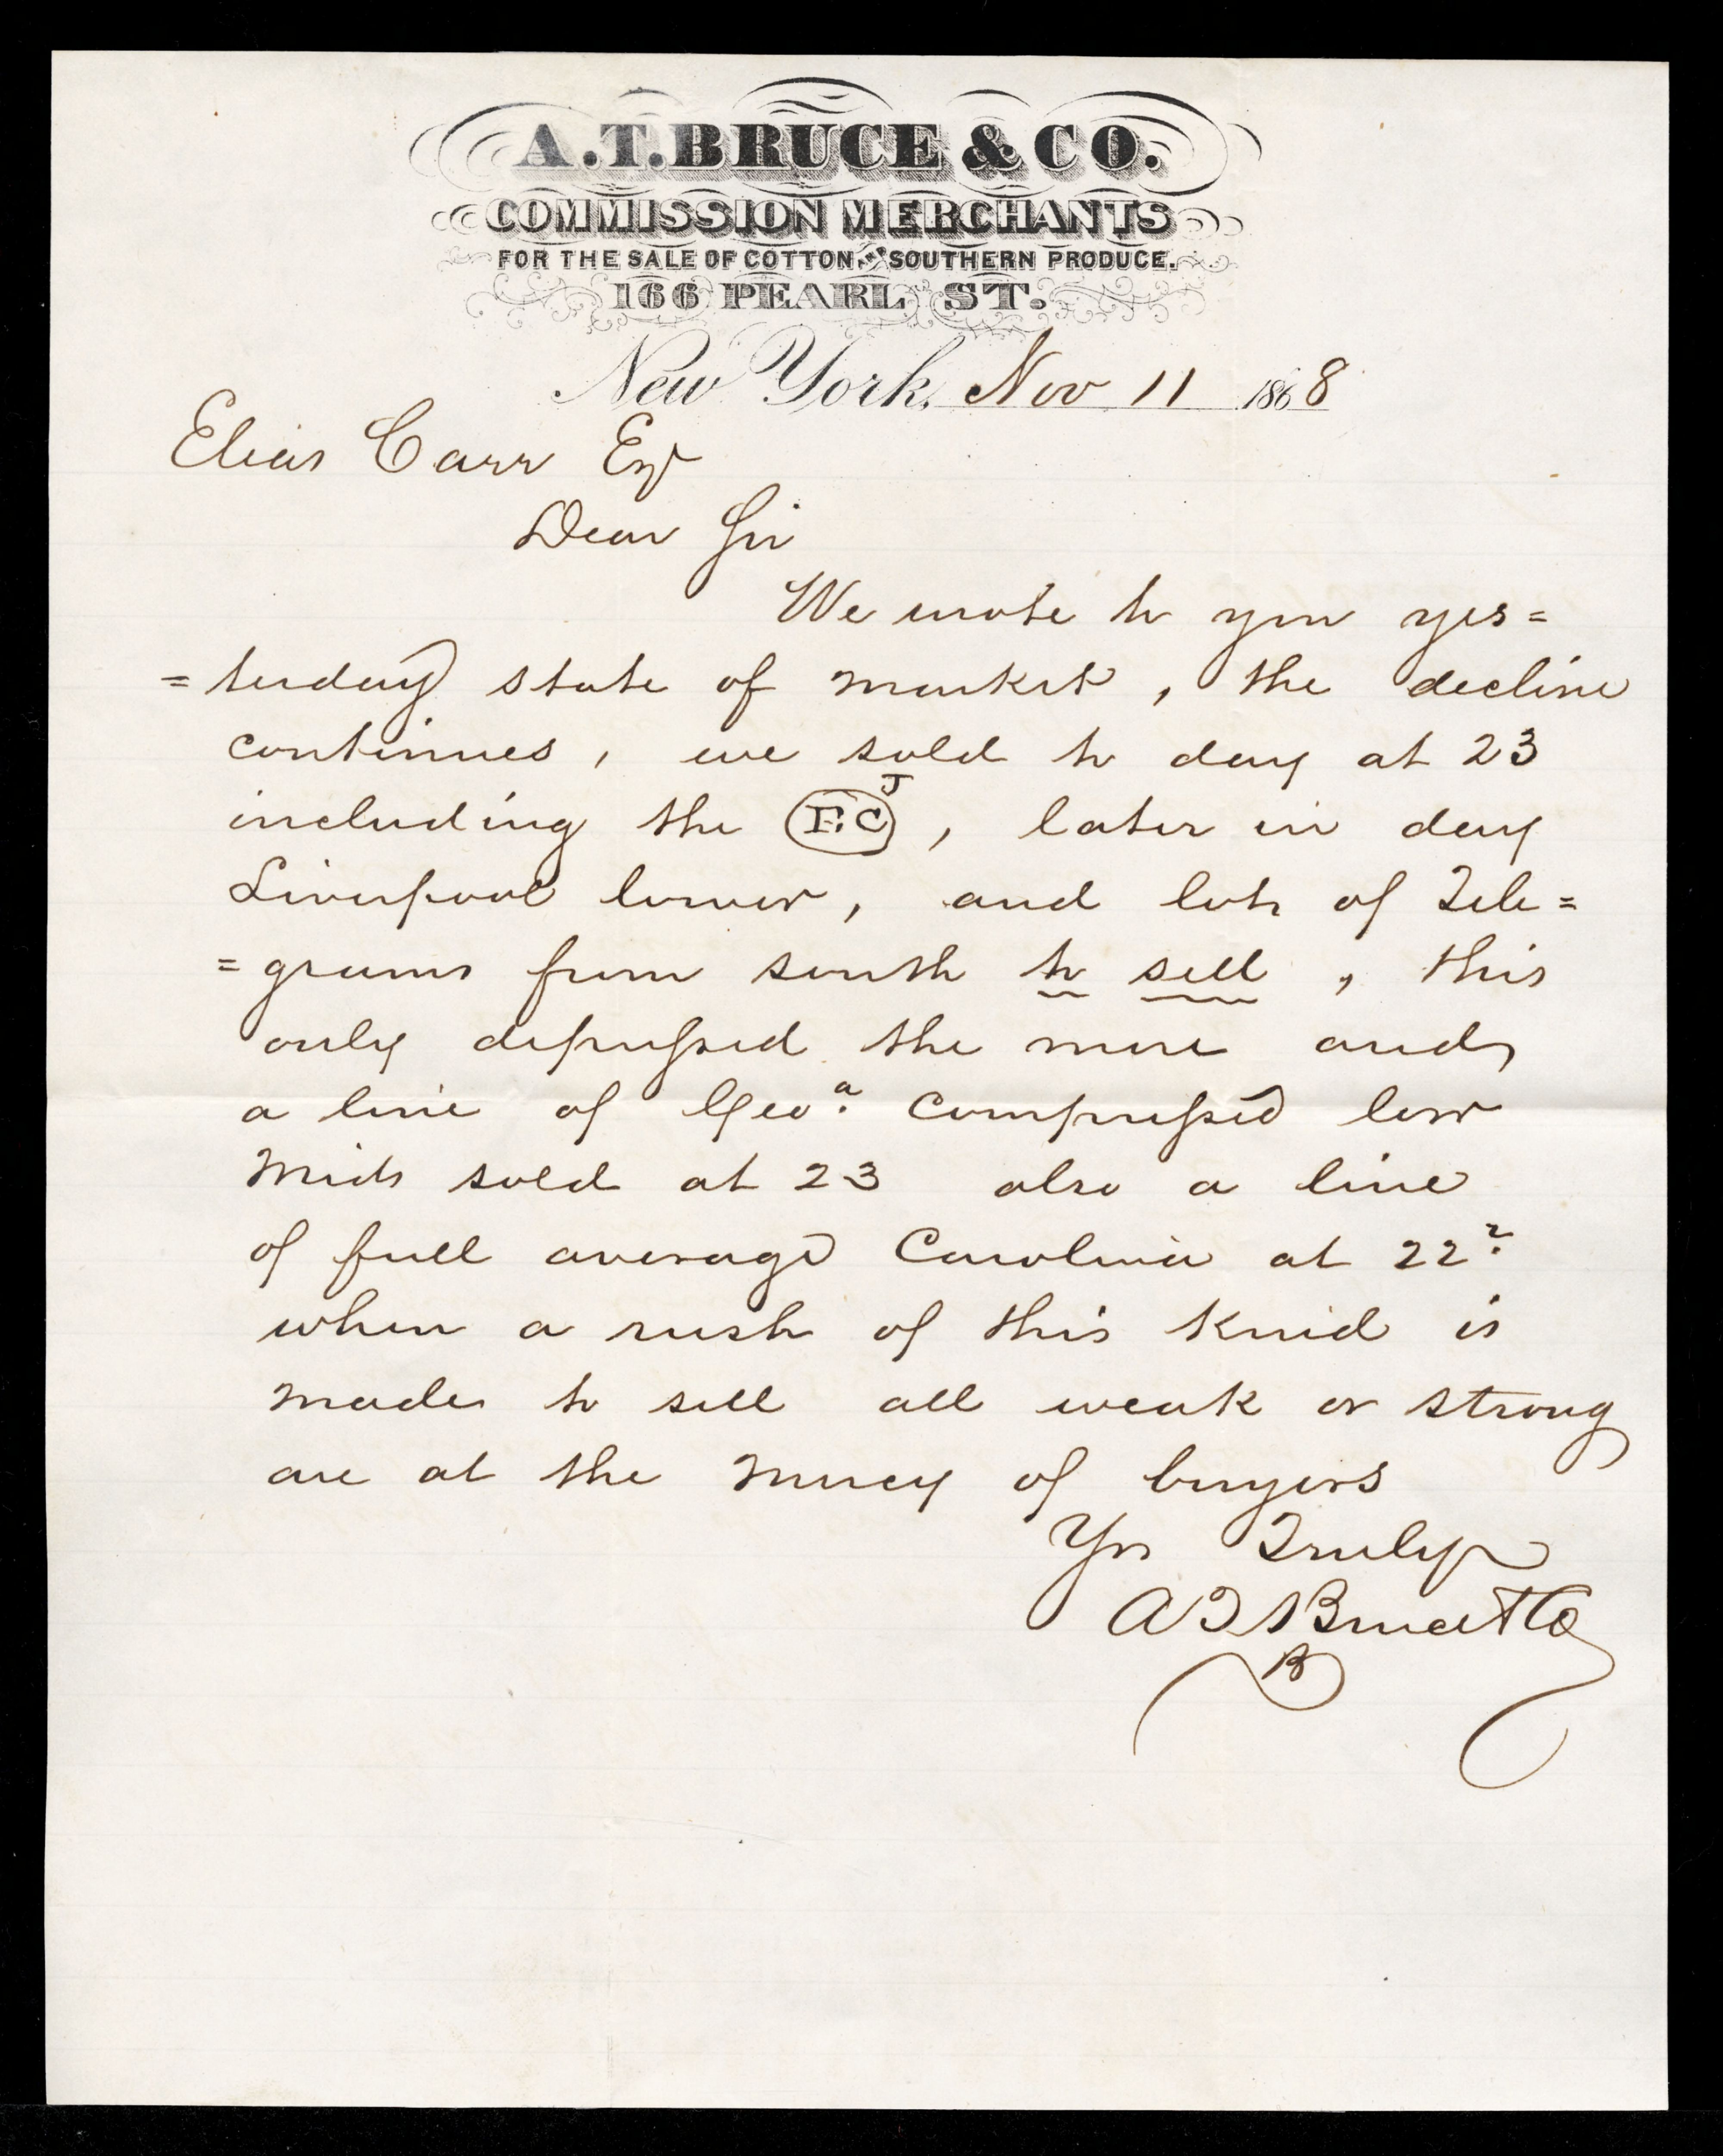 A.T. BRUCE & CO.
COMMISSION MERCHANTS
FOR THE SALE OF COTTON AND SOUTHERN PRODUCE.
166 PEARL ST.
New York, Nov 11 1868
Elias Carr Esq
Dear Sir
We wrote to you yes=
=terday state of market, the decline
continues, we sold to day at 23
including the E.C J, later in day
Liverpool lower, and lots of Tele=
=grams from south to sell, this
only depressed the more and
a line of Geoa. compressed low
Mids sold at 23 also a line
of full average Carolina at 22
when a rush of this kind is
made to sell all weak or strong
are at the mercy of buyers
Yrs Truly
A T Bruce & Co
B